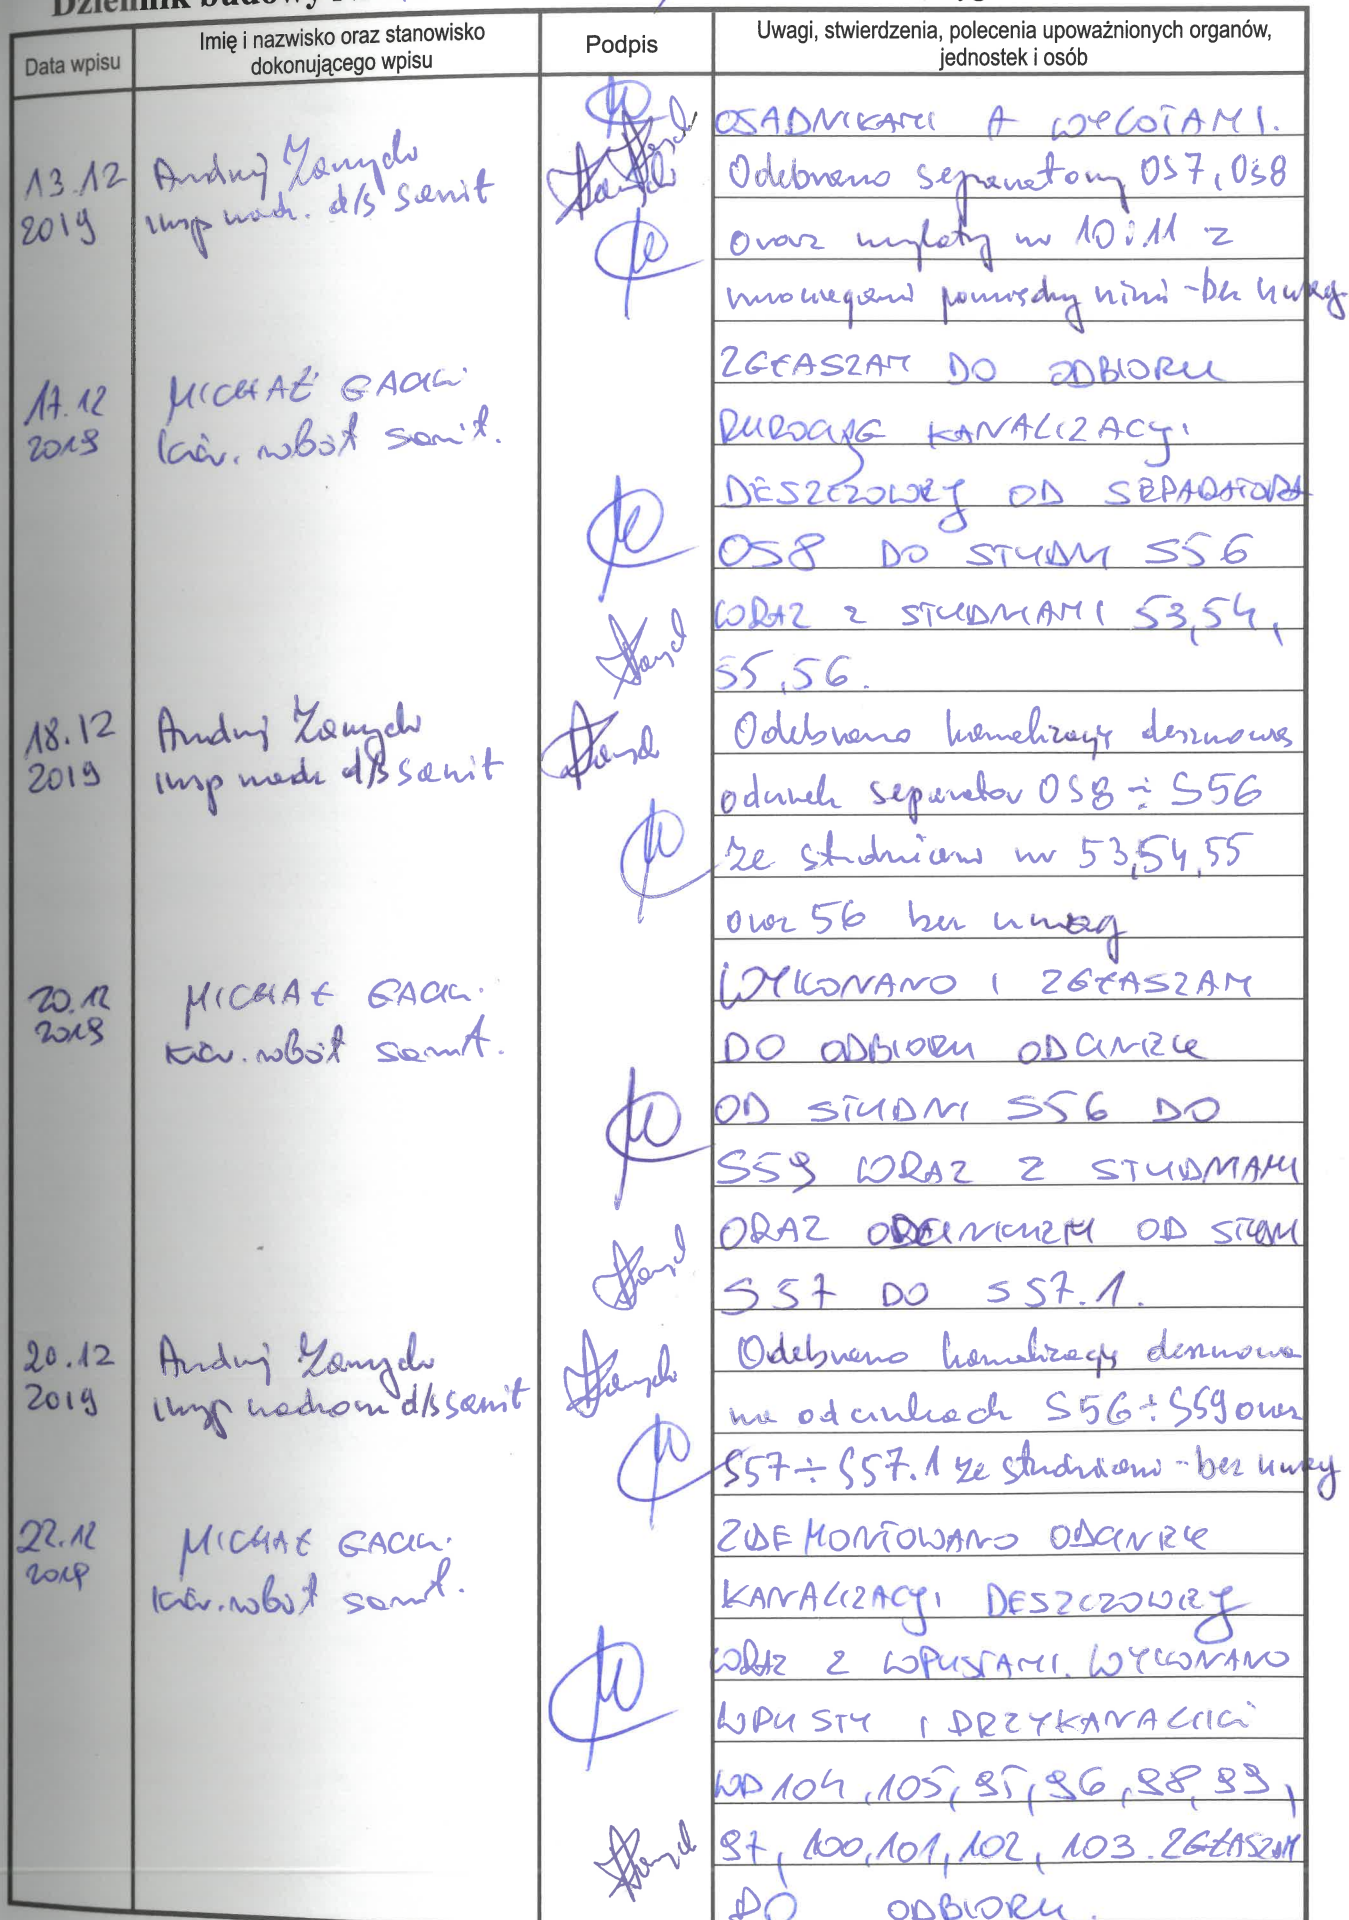 Dziennik budowy
Data wpisu
Imię i nazwisko oraz stanowisko
dokonującego wpisu
Podpis
Uwagi, stwierdzenia, polecenia upoważnionych organów,
jednostek i osób
OSADNIKAMI A WYLOTAMI.
13.12
2019
Andrzej
insp nadz. d/s sanit
Odebrano separatory OS7, OS8
oraz wyloty nr 10 i 11 z
rurociągami pomiędzy nimi - bez uwag
17.12
2019
MICHAŁ
kier. robót sanit.
ZGŁASZAM DO ODBIORU
RUROCIĄG KANALIZACJI
DESZCZOWEJ OD SEPARATORA
OS8 DO STUDNI S56
WRAZ Z STUDNIAMI 53,54,
55,56.
18.12
2019
Andrzej
insp nadz d/s sanit
Odebrano kanalizację deszczową
odcinek separator OS8 ÷ S56
ze studniami nr 53,54,55
oraz 56 bez uwag
20.12
2019
MICHAŁ
kier. robót sanit.
WYKONANO I ZGŁASZAM
DO ODBIORU ODCINEK
OD STUDNI S56 DO
S59 WRAZ Z STUDNIAMI
ORAZ ODCINKIEM OD STUDNI
S57 DO S57.1.
20.12
2019
Andrzej
insp nadzoru d/s sanit
Odebrano kanalizację deszczową
na odcinkach S56÷S59 oraz
S57÷S57.1 ze studniami - bez uwag
22.12
2019
MICHAŁ
kier. robót sanit.
ZDEMONTOWANO ODCINEK
KANALIZACJI DESZCZOWEJ
WRAZ Z WPUSTAMI. WYKONANO
WPUSTY I PRZYKANALIKI
WP 104, 105, 95, 96, 98, 99,
97, 100, 101, 102, 103. ZGŁASZAM
DO ODBIORU.